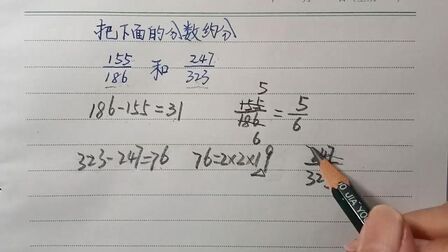 把下面的分数约分
155/186 和 247/323
186-155=31
5
155/186=5/6
6
323-247=76
76=2×2×19
247/323=
JIA YO